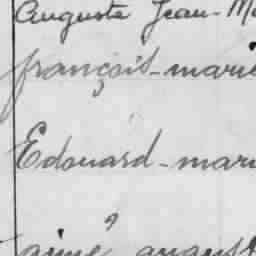 Auguste Jean-Ma
françois-marie
Edouard-mari
aimé august